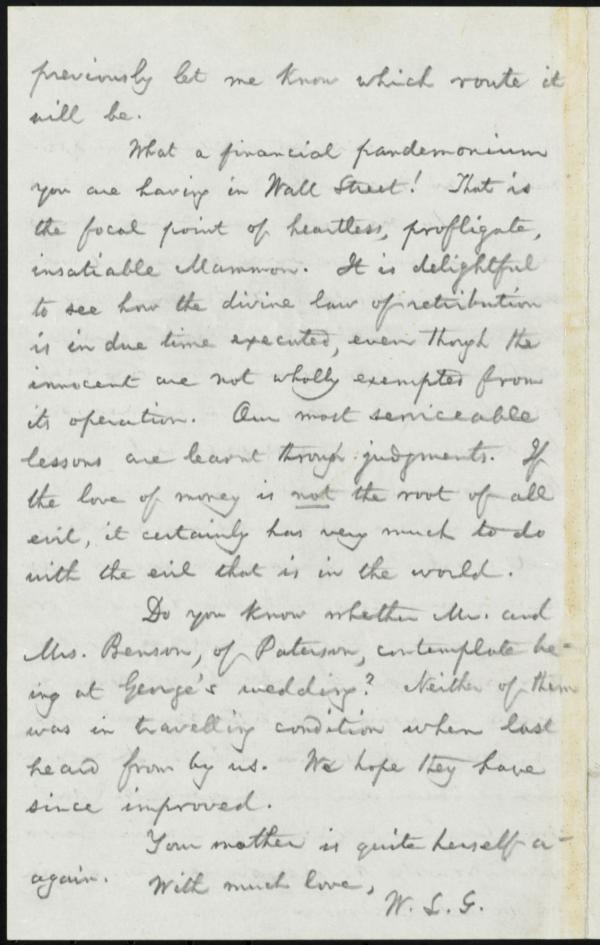 previously let me know which route it
will be.
What a financial pandemonium
you are having in Wall Street! That is
the focal point of heartless, profligate,
insatiable Mammon. It is delightful
to see how the divine law of retribution
is in due time executed, even though the
innocent are not wholly exempted from
its operation. Our most serviceable
lessons are learnt through judgments. If
the love of money is not the root of all
evil, it certainly has very much to do
with the evil that is in the world.
Do you know whether Mr. and
Mrs. Benson, of Paterson, contemplate be-
ing at George's wedding? Neither of them
was in travelling condition when last
heard from by us. We hope they have
since improved.
Your mother is quite herself a-
again.
With much love,
W. L. G.